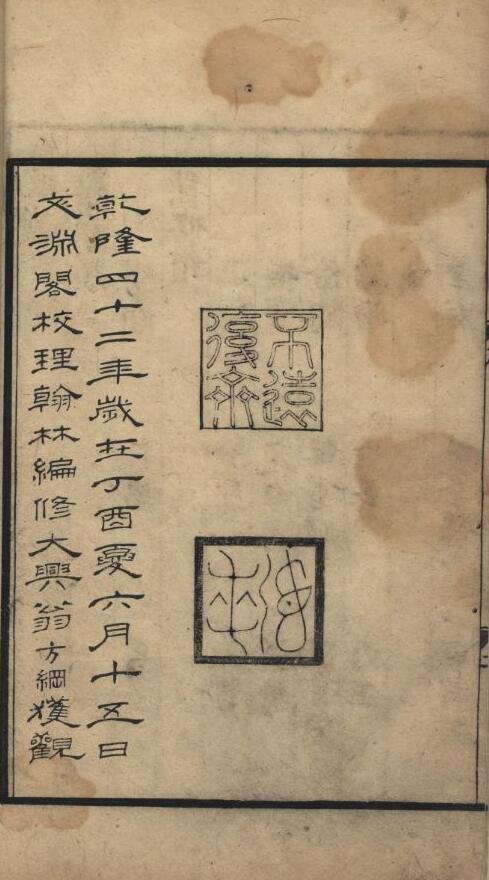 不遠
復齋
乾隆四十二年歲在丁酉夏六月十五日
文淵閣校理翰林編修大興翁方綱獲觀